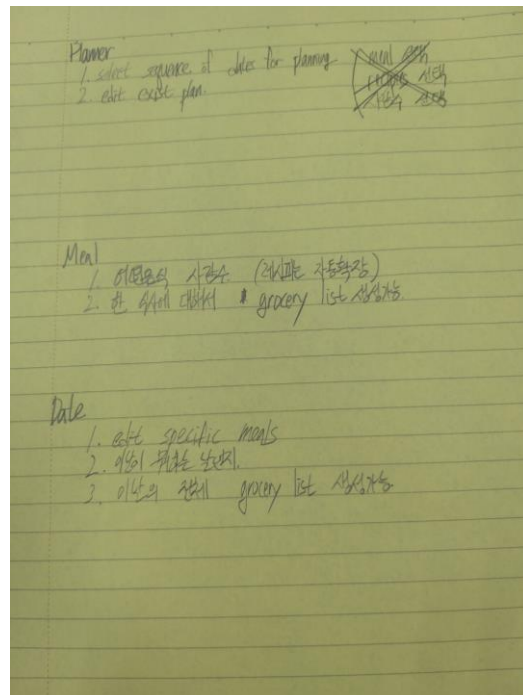 Planner
1. select sequence of dates for planning
2. edit exist plan.
meal 선택
선택
인분수 선택
Meal
1. 어떤음식 사람수 (레시피는 자동확장)
2. 한 식사에 대해서 grocery list 생성가능
Date
1. edit specific meals
2. 이날이 뭐하는 날인지.
3. 이날의 전체 grocery list 생성가능